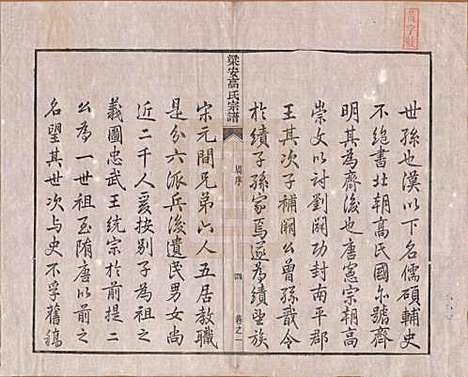 世孫也漢以下名儒碩輔史
不絕書北朝高氏國尔號齊
明其為齊後也唐憲宗朝高
崇文以討劉闢功封南平郡
王其次子補闕公曾孫戩令
於績子孫家焉遂為績望族
梁安高氏宗譜
序
卷之一
宋元間兄弟六人五居教職
是分六派兵後遺民男女尚
近二千人爰按別子為祖之
義國忠武王統宗於前提二
公為一世祖至隋唐以前之
名望其世次与史不孚舊稿